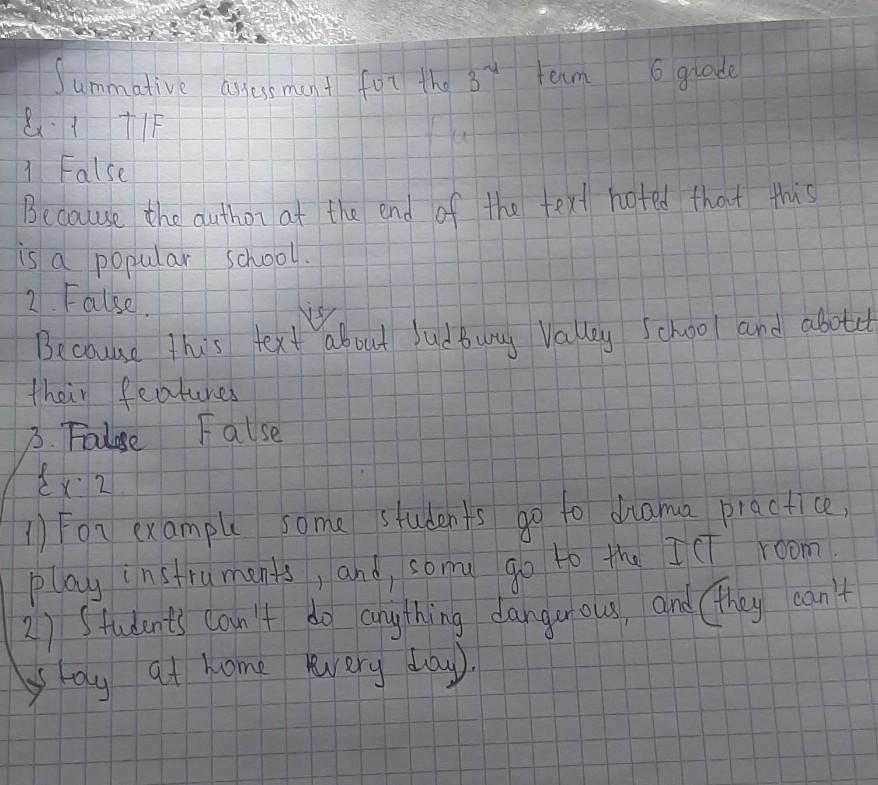 Summative assessment for the 3rd term 6 grade
Ex. 1 T/F
1 False
Because the author at the end of the text noted that this
is a popular school.
2. False.
is
Because this text about Sudbury Valley School and about
their features
3. False False
Ex. 2
1) For example some students go to drama practice,
play instruments, and, some go to the ICT room.
2) Students can't do anything dangerous, and (they can't
stay at home every day).